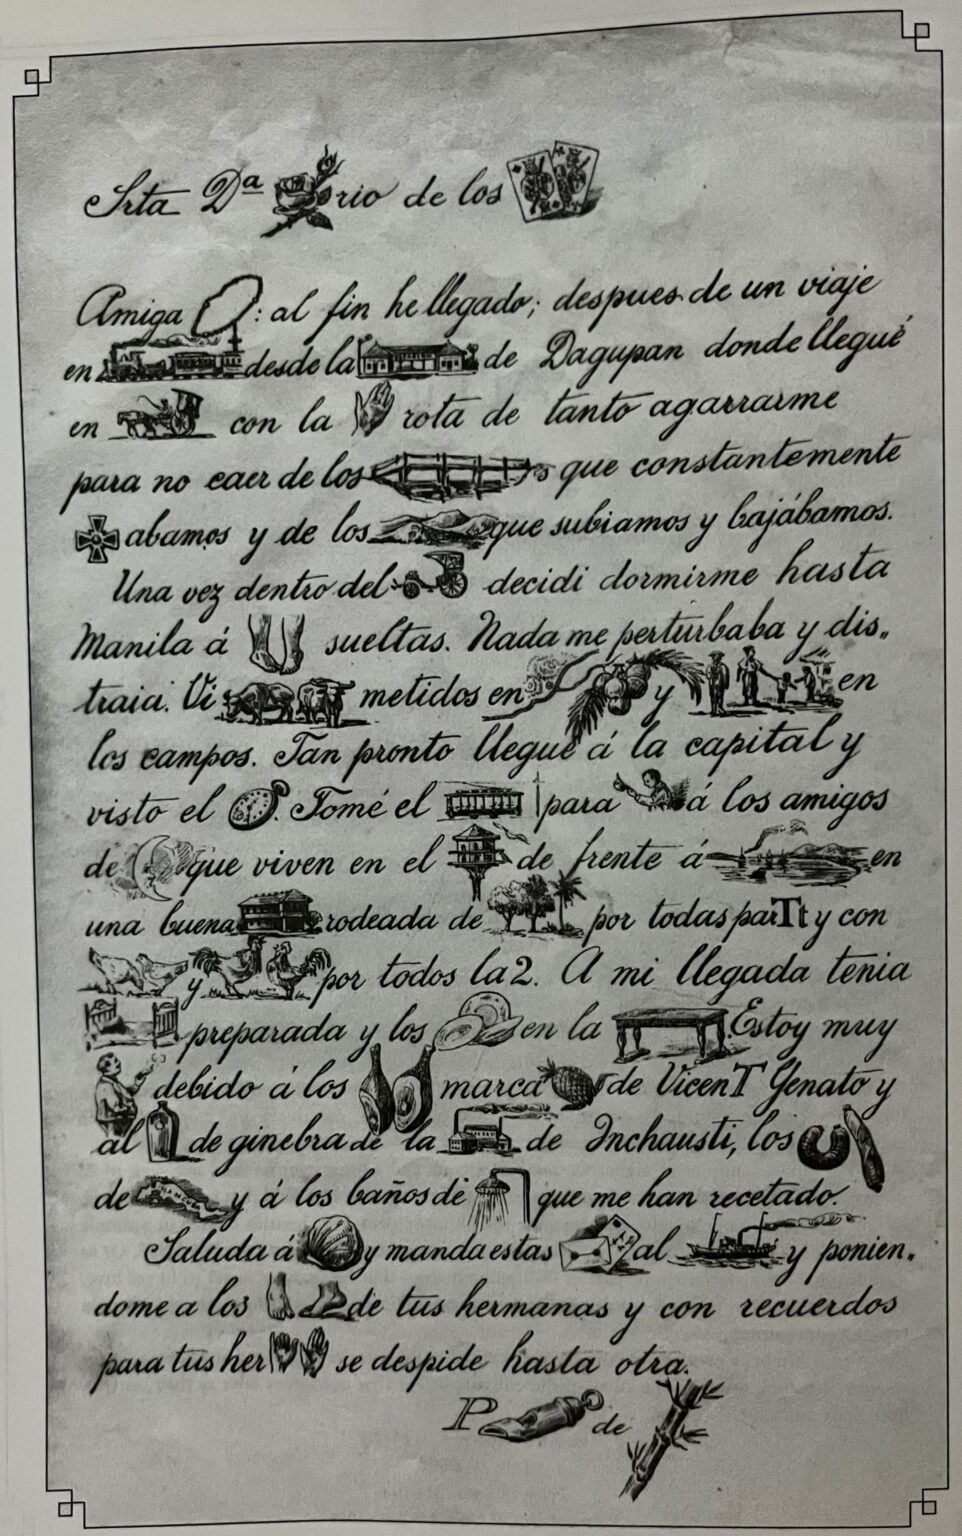 Srta Dª rio de los
Amiga : al fin he llegado; despues de un viaje
en desde la de Dagupan donde llegué
en con la rota de tanto agarrarme
para no caer de los que constantemente
abamos y de los que subiamos y bajábamos.
Una vez dentro del decidi dormirme hasta
Manila á sueltas. Nada me perturbaba y dis„
traia. Vi metidos en y en
los campos. Tan pronto llegue á la capital y
visto el . Tomé el para á los amigos
de que viven en el de frente á en
una buena rodeada de por todas parTt y con
y por todos la2. A mi llegada tenia
preparada y los en la Estoy muy
debido á los marca de VicenT Genato y
al de ginebra de la de Inchausti, los
de y á los baños de que me han recetado.
Saluda á y manda estas al y ponien„
dome a los de tus hermanas y con recuerdos
para tus her se despide hasta otra.
P de